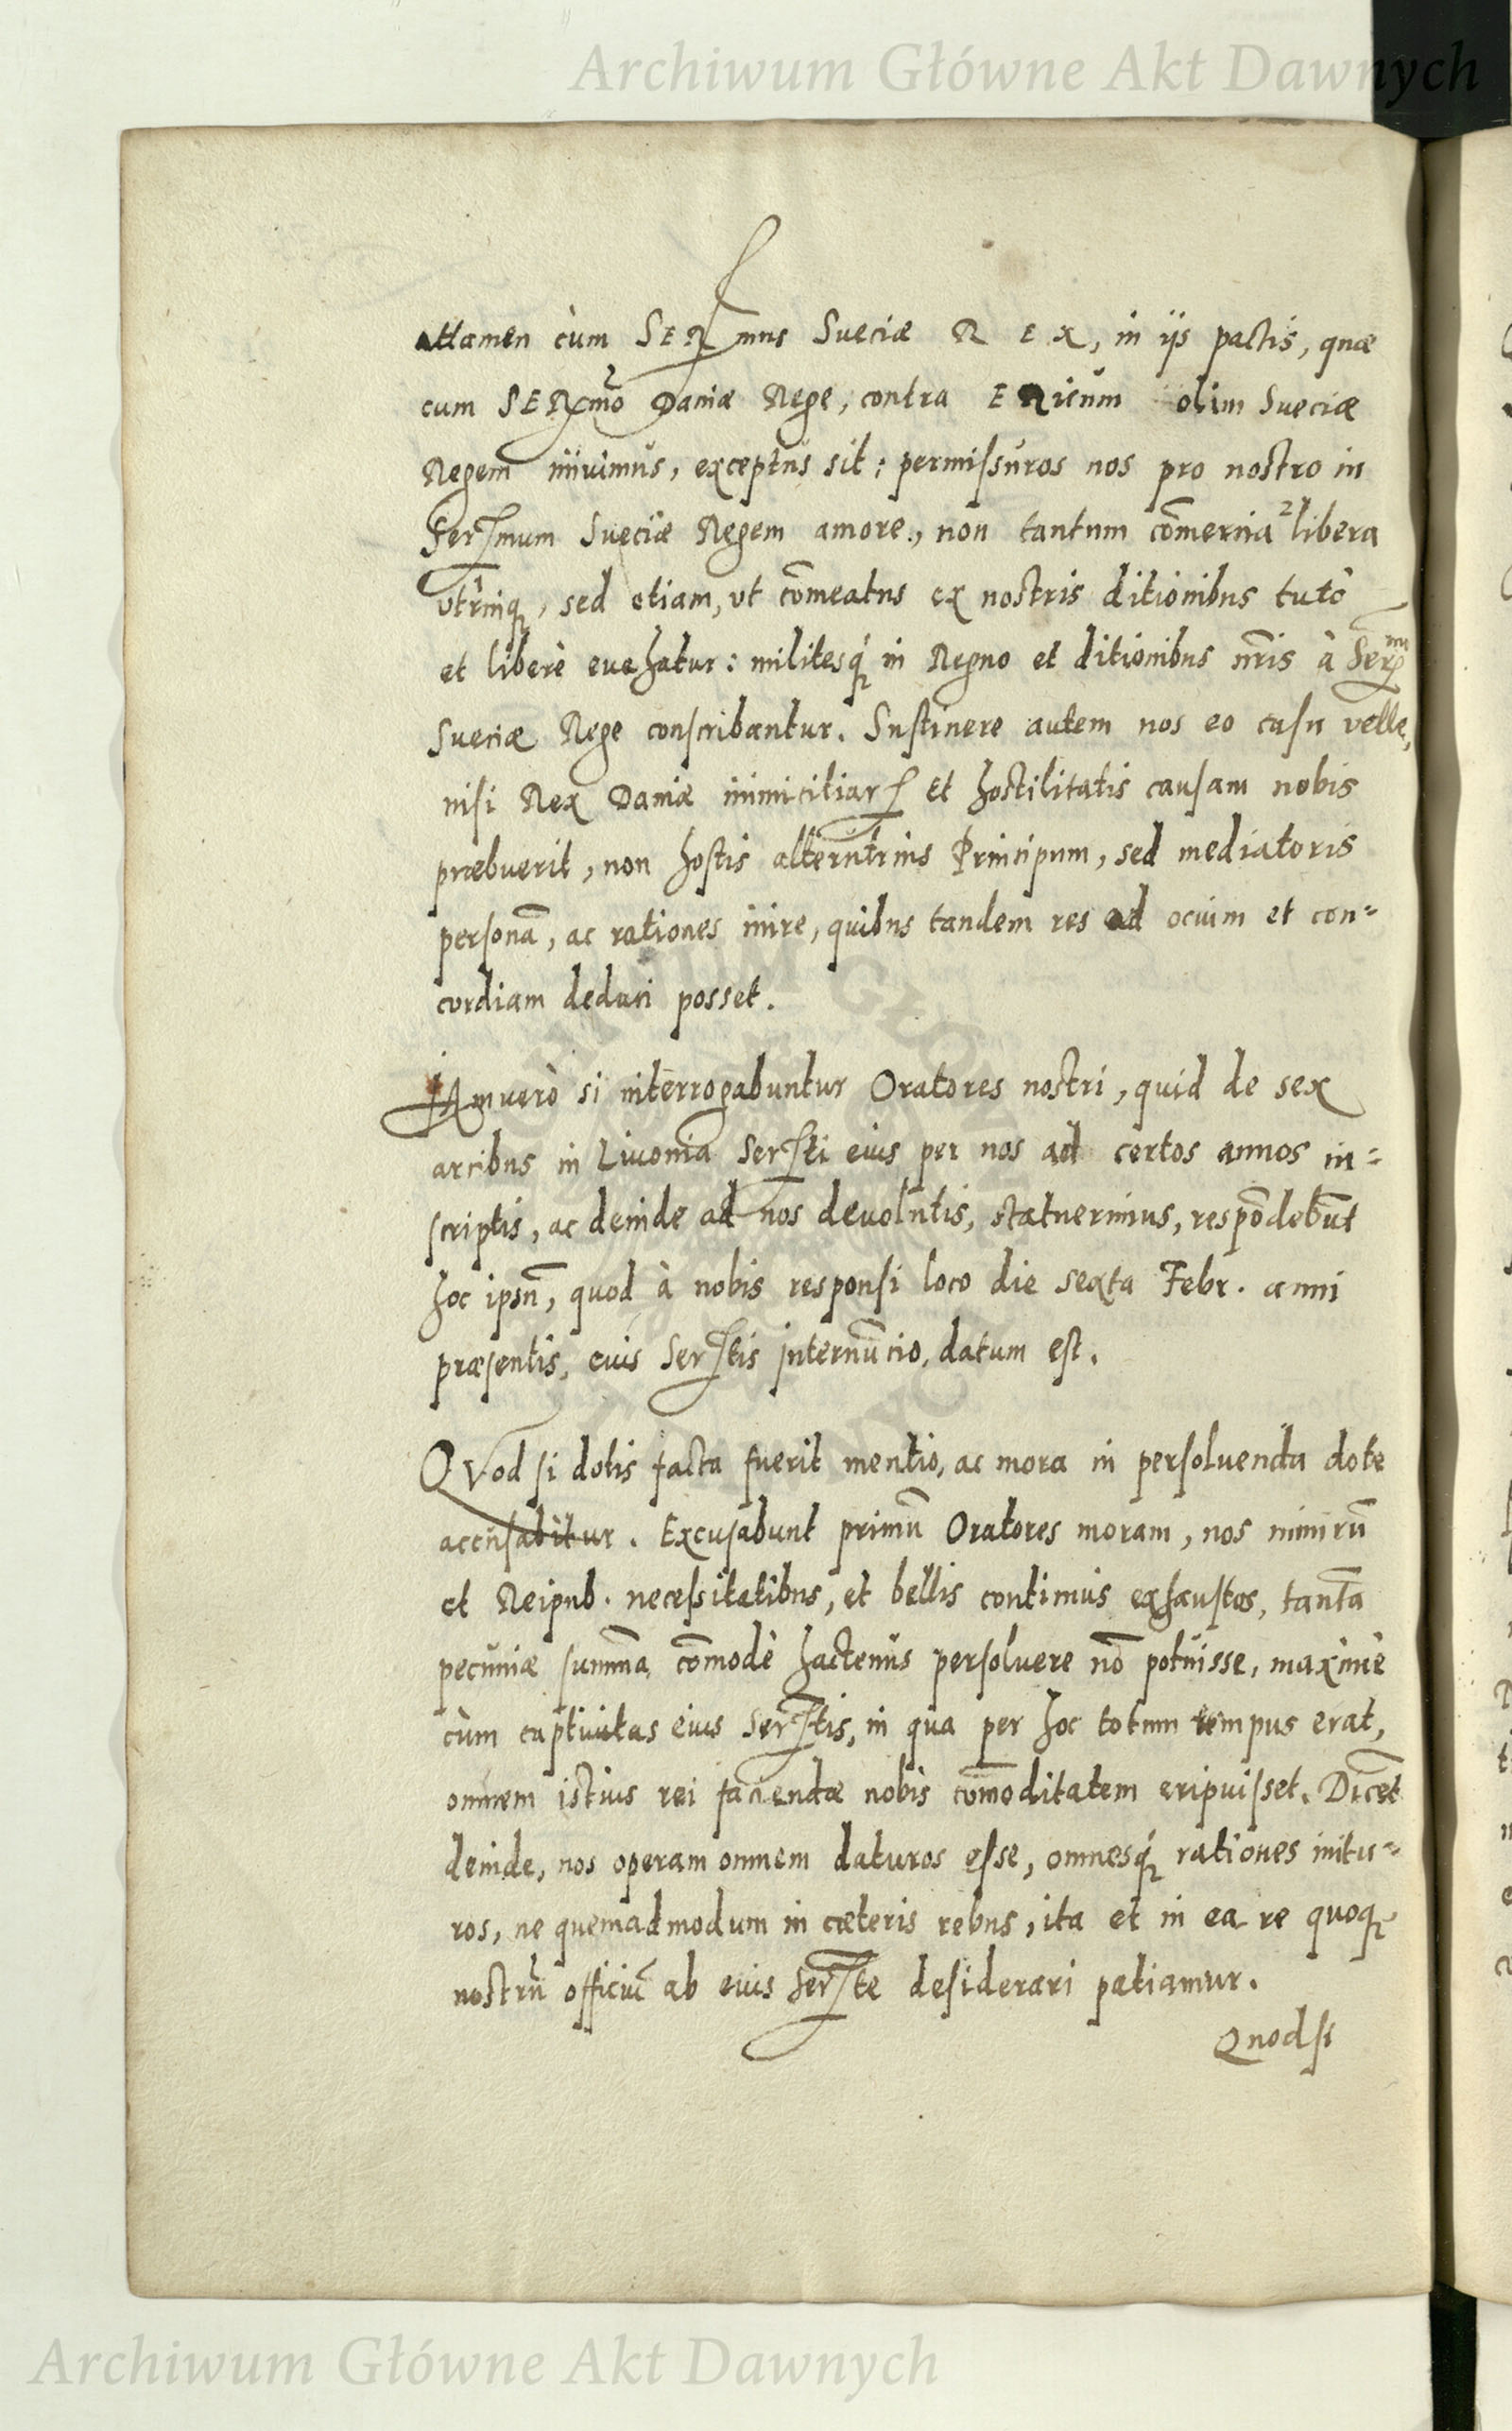 Archiwum Główne Akt Dawnych
attamen cùm SERmus Sueciæ REX, in ijs pactis, quæ
cum SERmo Daniæ Rege, contra ERicum olim Sueciæ
Regem iniuimus, exceptus sit: permissuros nos pro nostro in
Sermum Sueciæ Regem amore, non tantum com̄ercia libera
vtrinq, sed etiam, vt com̄eatus ex nostris ditionibus tutò
et liberè euehatur: militesq́ in Regno et ditionibus nr̄is à Sermo
Sueciæ Rege conscribantur. Sustinere autem nos eo casu velle,
nisi Rex Daniæ inimicitiarꝭ et hostilitatis causam nobis
præbuerit, non hostis alterutrius Principum, sed mediatoris
personā, ac rationes inire, quibus tandem res ad ocium et con=
cordiam deduci posset.
IAmuerò si interrogabuntur Oratores nostri, quid de sex
arcibus in Liuonia Serti eius per nos ad certos annos in=
scriptis, ac deinde ad nos deuolutis, statuerimus, respōdebūt
hoc ipsū, quod à nobis responsi loco die sexta Febr. anni
præsentis, eius Sertis internūcio, datum est.
QVod si dotis facta fuerit mentio, ac mora in persoluenda dote
accusabitur. Excusabunt primū Oratores moram, nos nimirū
et Reipub. necessitatibus, et bellis continuis exhaustos, tantā
pecuniæ summā com̄odè hactenus persoluere nō potuisse, maximè
cùm captiuitas eius Sertis, in qua per hoc totum tempus erat,
omnem istius rei faciendæ nobis com̄oditatem eripuisset. Dicēt
deinde, nos operam omnem daturos esse, omnesq́ rationes initu=
ros, ne quemadmodum in cæteris rebus, ita et in ea re quoq
nostrū officiū ab eius Serte desiderari patiamur.
Quodsi
Archiwum Główne Akt Dawnych